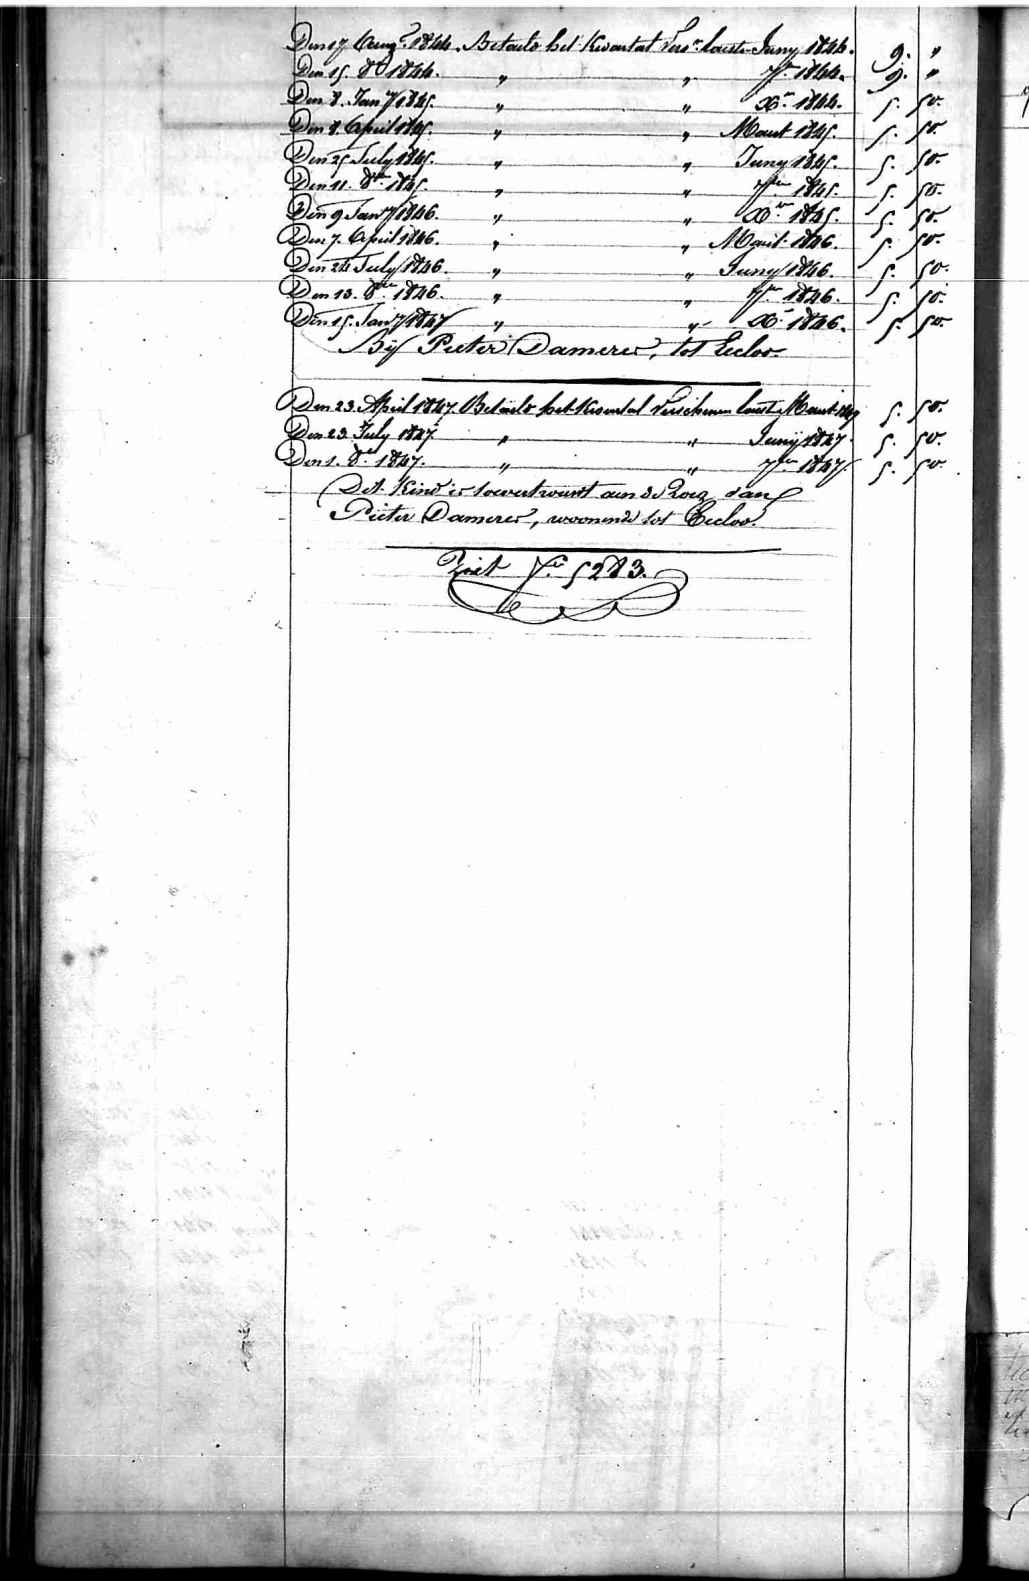 Den 17 Aug.t 1844. Betaelt het Kwartal Vers.n laeste Juny 1844. 9. "
Den 15. 8.e 1844. " " 7.re 1844. 9. "
Den 8. Jan.y 1845. " " X.r 1844. 5. 50.
Den 8. April 1845. " " Maart 1845. 5. 50.
Den 25 July 1845. " " Juny 1845. 5. 50.
Den 11. 8.re 1845. " " 7.re 1845. 5. 50.
Den 9 Jan.y 1846. " " X.r 1845. 5. 50.
Den 7. April 1846. " " Maart 1846. 5. 50.
Den 24 July 1846. " " Juny 1846. 5. 50.
Den 13. 8.re 1846. " " 7.re 1846. 5. 50.
Den 15. Jan.y 1847 " " X.r 1846. 5. 50.
Bij Pieter Dameres, tot Eecloo.
Den 23. April 1847. Betaelt het Kwartal Verschenen laest Maart 1847 5. 50.
Den 23 July 1847. " " Junij 1847. 5. 50.
Den 1. 8.re 1847. " " 7.re 1847. 5. 50.
Dit Kind is toevertrouwt aen de Zorg van
Pieter Dameres, woonende tot Eecloo.
Ziet N.o 5283.